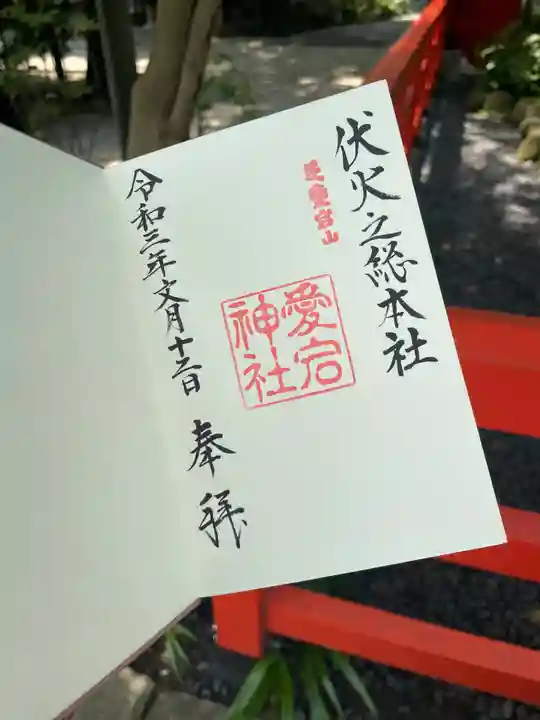 伏火之総本社
芝愛宕山
愛宕
神社
令和三年文月十二日
奉拝